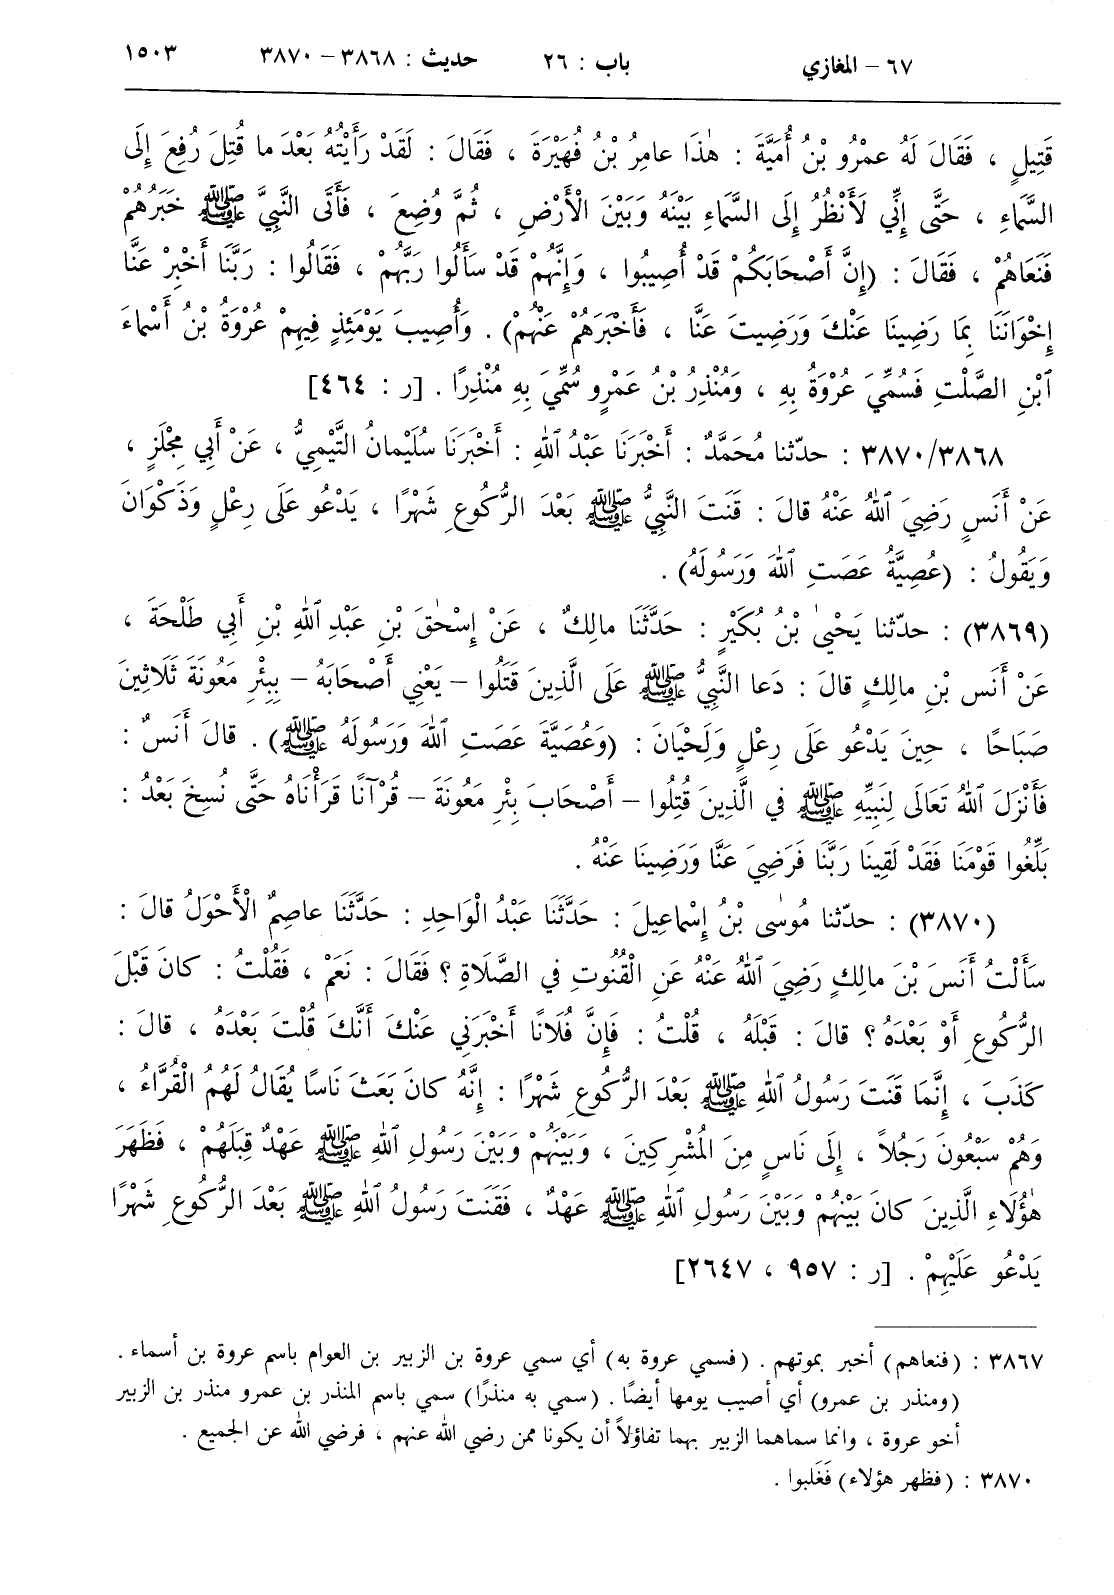 ٦٧ – المغازي باب : ٢٦ حديث : ٣٨٦٨ – ٣٨٧٠ ١٥٠٣
قَتِيلٍ ، فَقَالَ لَهُ عَمْرُو بْنُ أُمَيَّةَ : هٰذَا عامِرُ بْنُ فُهَيْرَةَ ، فَقَالَ : لَقَدْ رَأَيْتُهُ بَعْدَ ما قُتِلَ رُفِعَ إِلَى
السَّمَاءِ ، حَتَّى إِنِّي لَأَنْظُرُ إِلَى السَّمَاءِ بَيْنَهُ وَبَيْنَ الْأَرْضِ ، ثُمَّ وُضِعَ ، فَأَتَى النَّبِيَّ ﷺ خَبَرُهُمْ
فَنَعَاهُمْ ، فَقَالَ : (إِنَّ أَصْحَابَكُمْ قَدْ أُصِيبُوا ، وَإِنَّهُمْ قَدْ سَأَلُوا رَبَّهُمْ ، فَقَالُوا : رَبَّنَا أَخْبِرْ عَنَّا
إِخْوَانَنَا بِمَا رَضِينَا عَنْكَ وَرَضِيتَ عَنَّا ، فَأَخْبَرَهُمْ عَنْهُمْ) . وَأُصِيبَ يَوْمَئِذٍ فِيهِمْ عُرْوَةُ بْنُ أَسْماءَ
ٱبْنِ الصَّلْتِ فَسُمِّيَ عُرْوَةُ بِهِ ، وَمُنْذِرُ بْنُ عَمْرٍو سُمِّيَ بِهِ مُنْذِرًا . [ر : ٤٦٤]
٣٨٧٠/٣٨٦٨ : حدّثنا مُحَمَّدٌ : أَخْبَرَنَا عَبْدُ ٱللهِ : أَخْبَرَنَا سُلَيْمانُ التَّيْمِيُّ ، عَنْ أَبِي مِجْلَزٍ ،
عَنْ أَنَسٍ رَضِيَ ٱللهُ عَنْهُ قالَ : قَنَتَ النَّبِيُّ ﷺ بَعْدَ الرُّكُوعِ شَهْرًا ، يَدْعُو عَلَى رِعْلٍ وَذَكْوَانَ
وَيَقُولُ : (عُصَيَّةُ عَصَتِ ٱللهَ وَرَسُولَهُ) .
(٣٨٦٩) : حدّثنا يَحْيىٰ بْنُ بُكَيْرٍ : حَدَّثَنَا مالِكٌ ، عَنْ إِسْحٰقَ بْنِ عَبْدِ ٱللهِ بْنِ أَبِي طَلْحَةَ ،
عَنْ أَنَسِ بْنِ مالِكٍ قالَ : دَعا النَّبِيُّ ﷺ عَلَى الَّذِينَ قَتَلُوا – يَعْنِي أَصْحَابَهُ – بِبِئْرِ مَعُونَةَ ثَلَاثِينَ
صَبَاحًا ، حِينَ يَدْعُو عَلَى رِعْلٍ وَلِحْيَانَ : (وَعُصَيَّةَ عَصَتِ ٱللهَ وَرَسُولَهُ ﷺ) . قالَ أَنَسٌ :
فَأَنْزَلَ ٱللهُ تَعَالَى لِنَبِيِّهِ ﷺ في الَّذِينَ قُتِلُوا – أَصْحَابِ بِئْرِ مَعُونَةَ – قُرْآنًا قَرَأْنَاهُ حَتَّى نُسِخَ بَعْدُ :
بَلِّغُوا قَوْمَنَا فَقَدْ لَقِينَا رَبَّنَا فَرَضِيَ عَنَّا وَرَضِينَا عَنْهُ .
(٣٨٧٠) : حدّثنا مُوسٰى بْنُ إِسْماعِيلَ : حَدَّثَنَا عَبْدُ الْوَاحِدِ : حَدَّثَنَا عاصِمٌ الْأَحْوَلُ قالَ :
سَأَلْتُ أَنَسَ بْنَ مالِكٍ رَضِيَ ٱللهُ عَنْهُ عَنِ الْقُنُوتِ في الصَّلَاةِ ؟ فَقَالَ : نَعَمْ ، فَقُلْتُ : كانَ قَبْلَ
الرُّكُوعِ أَوْ بَعْدَهُ ؟ قالَ : قَبْلَهُ ، قُلْتُ : فَإِنَّ فُلَانًا أَخْبَرَنِي عَنْكَ أَنَّكَ قُلْتَ بَعْدَهُ ، قالَ :
كَذَبَ ، إِنَّمَا قَنَتَ رَسُولُ ٱللهِ ﷺ بَعْدَ الرُّكُوعِ شَهْرًا : إِنَّهُ كانَ بَعَثَ نَاسًا يُقَالُ لَهُمُ الْقُرَّاءُ ،
وَهُمْ سَبْعُونَ رَجُلاً ، إِلَى نَاسٍ مِنَ الْمُشْرِكِينَ ، وَبَيْنَهُمْ وَبَيْنَ رَسُولِ ٱللهِ ﷺ عَهْدٌ قِبَلَهُمْ ، فَظَهَرَ
هٰؤُلَاءِ الَّذِينَ كانَ بَيْنَهُمْ وَبَيْنَ رَسُولِ ٱللهِ ﷺ عَهْدٌ ، فَقَنَتَ رَسُولُ ٱللهِ ﷺ بَعْدَ الرُّكُوعِ شَهْرًا
يَدْعُو عَلَيْهِمْ . [ر : ٩٥٧ ، ٢٦٤٧]
٣٨٦٧ : (فنعاهم) أخبر بموتهم . (فسمي عروة به) أي سمي عروة بن الزبير بن العوام باسم عروة بن أسماء .
(ومنذر بن عمرو) أي أصيب يومها أيضًا . (سمي به منذرًا) سمي باسم المنذر بن عمرو منذر بن الزبير
أخو عروة ، وانما سماهما الزبير بهما تفاؤلاً أن يكونا ممن رضي الله عنهم ، فرضي الله عن الجميع .
٣٨٧٠ : (فظهر هؤلاء) فَغَلبوا .